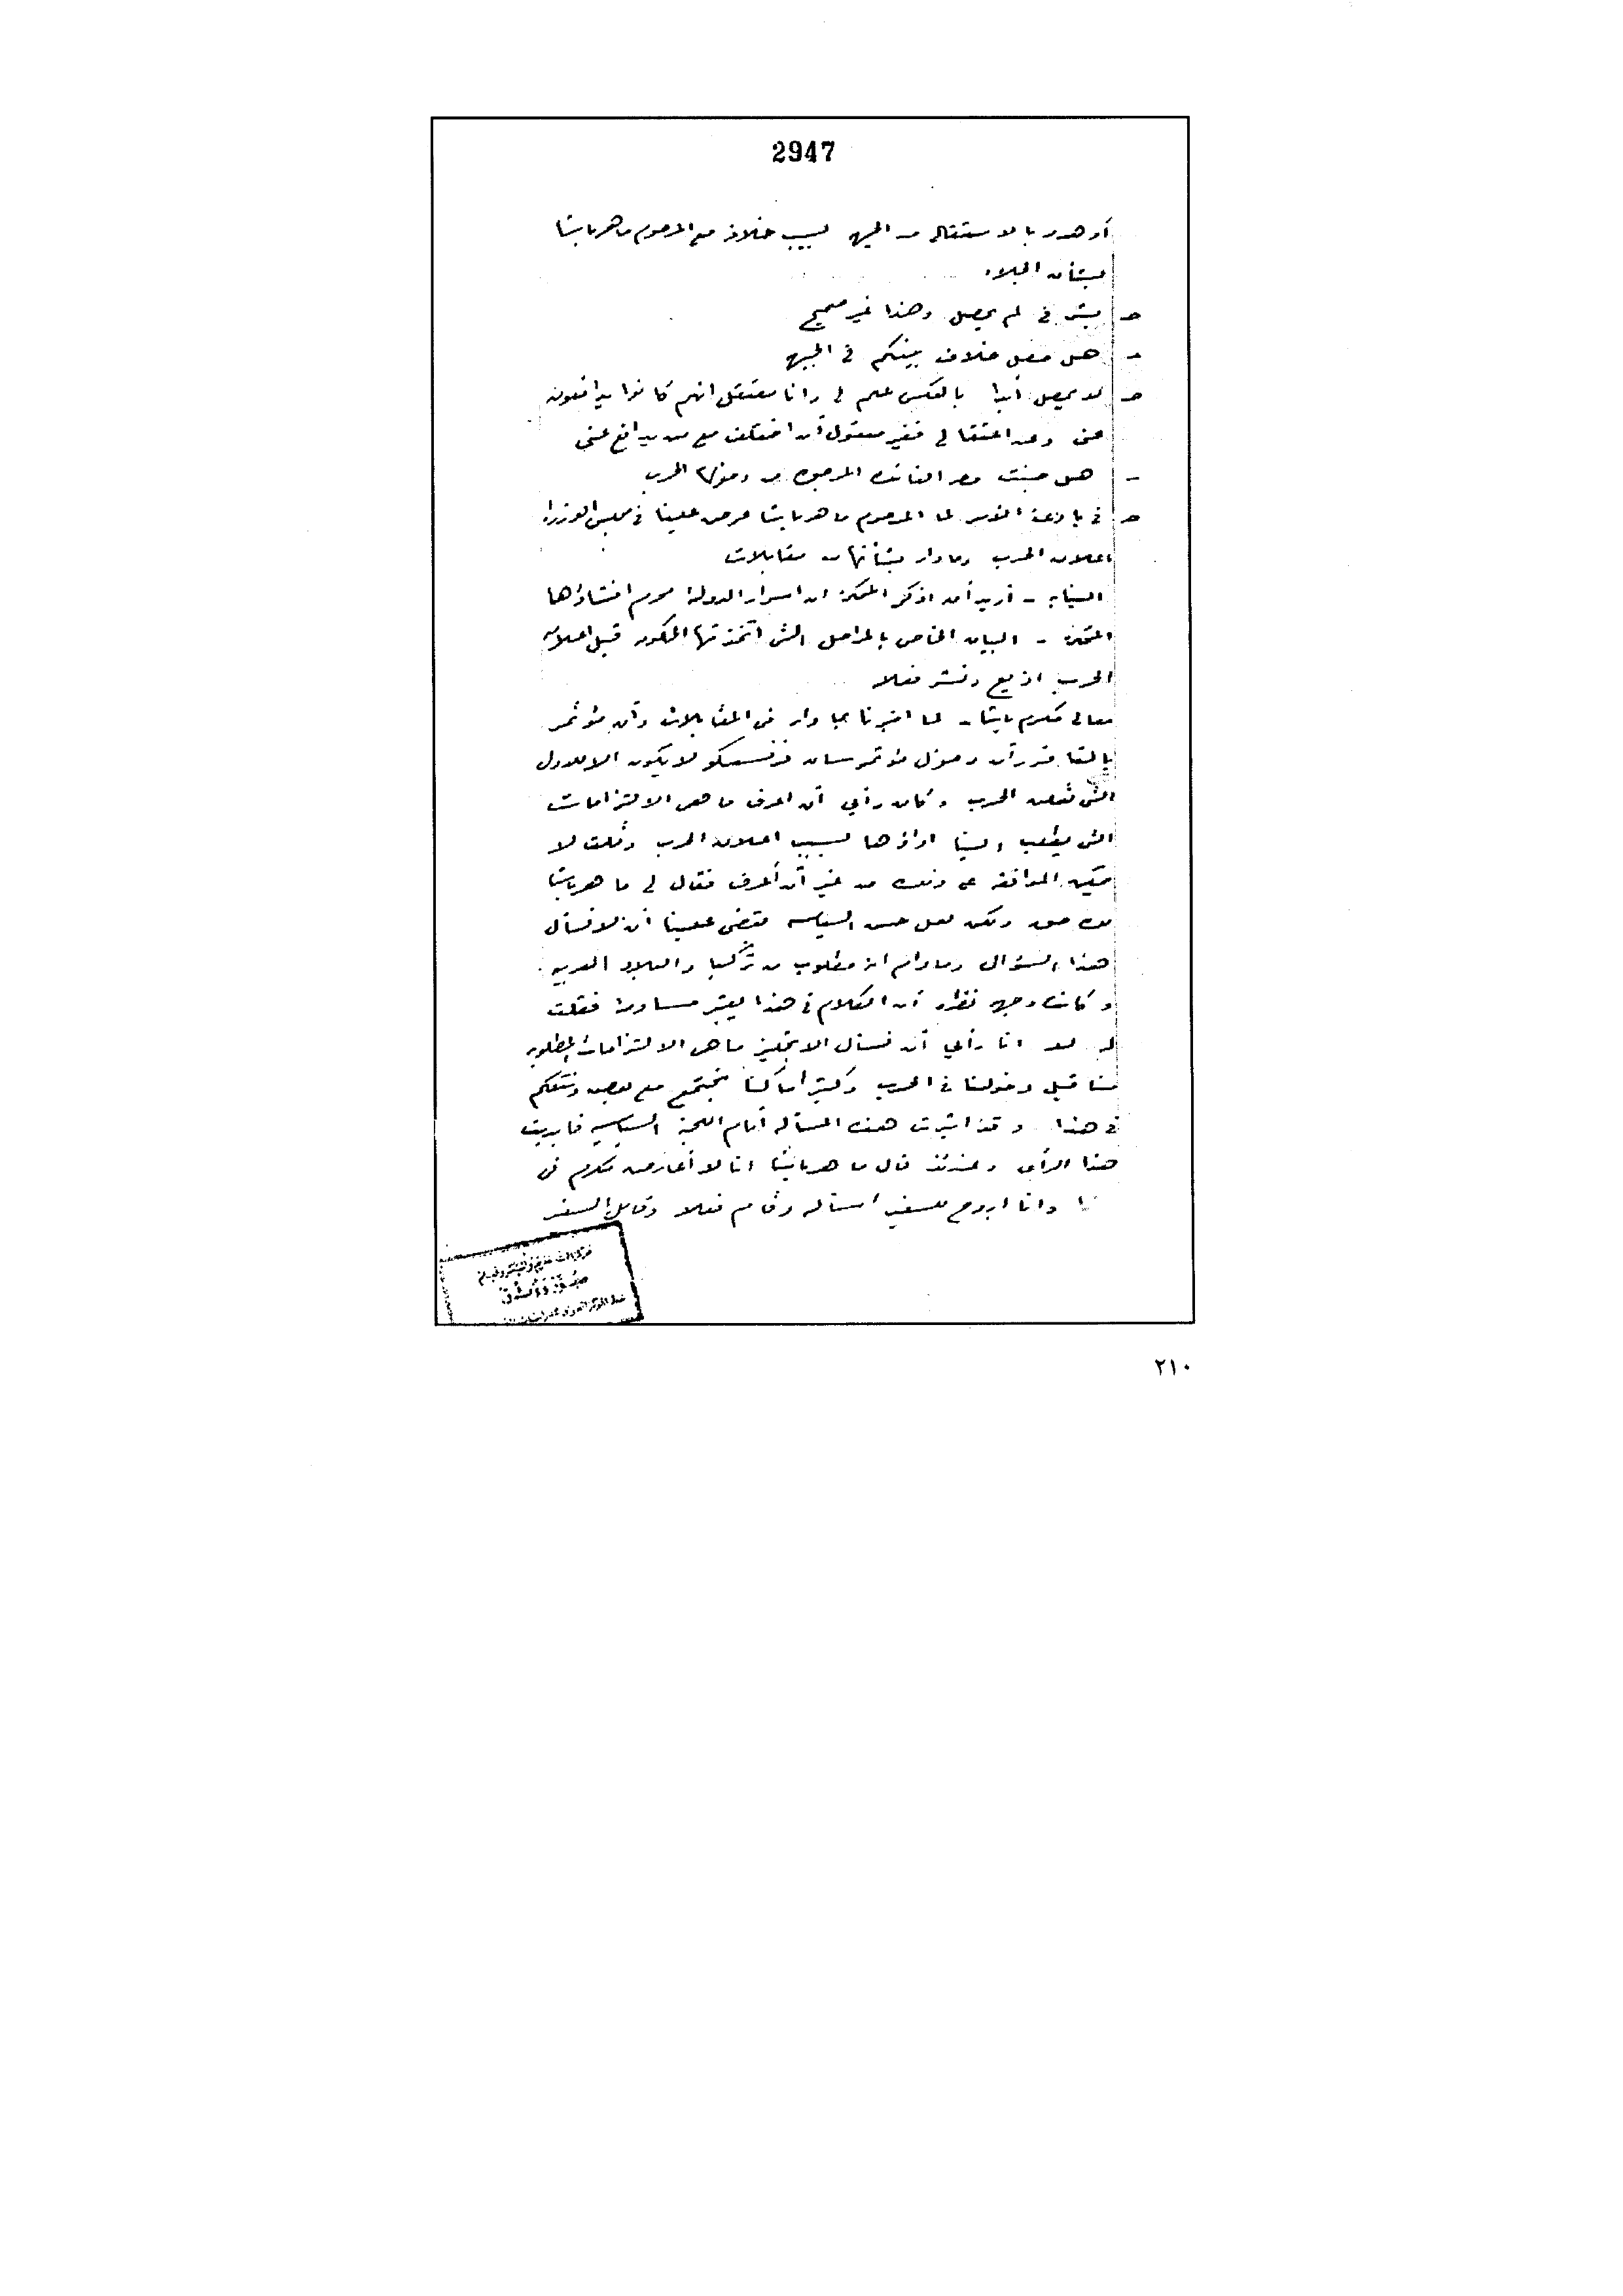 2947
أو هدد بالاستقالة من الجبهة بسبب خلاف مع المرحوم ماهر باشا
بشأن الجلاء
ج بشرفى لم يحصل وهذا غير صحيح
هل حصل خلاف بينكم فى الجبهة
ج لا يحصل أبدا بالعكس علم لى وانا معتقل انهم كانوا يدافعون
عنى وعن اعتقالى فغير معقول أن اختلف مع من يدافع عنى
هل جنت مصر الفائدة المرجوة من دخول الحرب
ج فى الأمر لما المرحوم ماهر باشا عرض علينا فى مجلس الوزراء
اعلان الحرب وما دار بشأنها من مقابلات
النيابة - أريد أن اذكر المحكمة ان اسرار الدولة محرم افشاؤها
المحكمة - البيان الخاص بالمراحل التى اتخذتها الحكومة قبل اعلان
الحرب اذيع ونشر فعلا
معالى مكرم باشا - لما اخبرنا بما دار فى المقابلات وأن مؤتمر
يالتا قرر أن دخول مؤتمر سان فرنسسكو لا يكون الا للدول
التى تعلن الحرب وكان رأيى أن اعرف ما هى الالتزامات
التى يطلب الينا اداؤها بسبب اعلان الحرب وقلت لا
يمكن الموافقة على ذلك من غير أن أعرف فقال لى ماهر باشا
لك حق ولكن لعل حسن السياسة يقضى علينا أن لا نسأل
هذا السؤال وما دام انه مطلوب من تركيا والبلاد العربية
وكانت وجهة نظره أن الكلام فى هذا يعتبر مساومة فقلت
له لا انا رأيى أن نسأل الانجليز ما هى الالتزامات المطلوبة
منا قبل دخولنا فى الحرب وكثيرا ما كنا نجتمع مع بعض ونتكلم
فى هذا وقد اثيرت هذه المسألة أمام اللجنة السياسية فأبديت
هذا الرأى وعندئذ قال ماهر باشا انا لا أعارض مكرم فى
وانا اروح للسفير اسأله وقام فعلا وقابل السفير
٢١٠